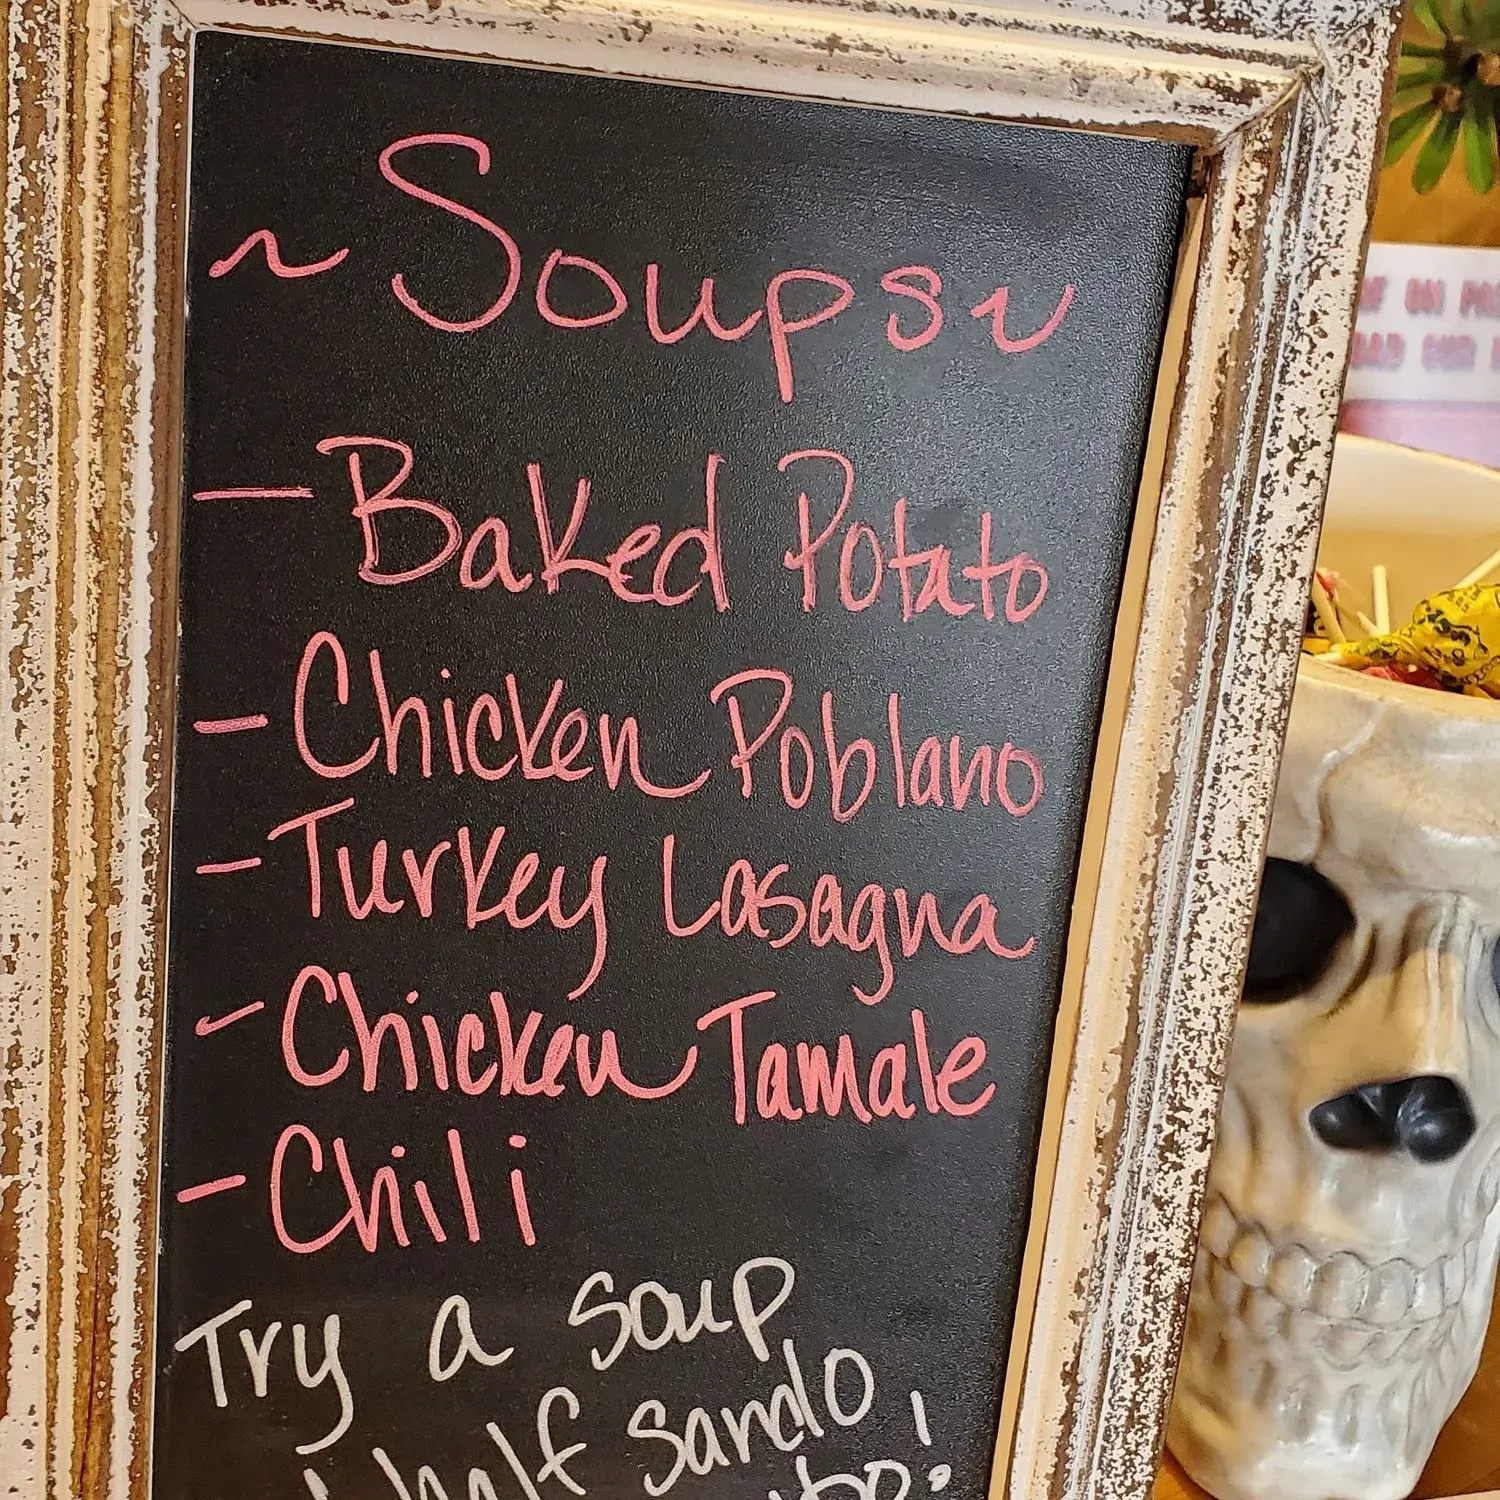 ~ Soups ~
- Baked Potato
- Chicken Poblano
- Turkey Lasagna
- Chicken Tamale
- Chili
Try a soup
half sando
ON
OUR